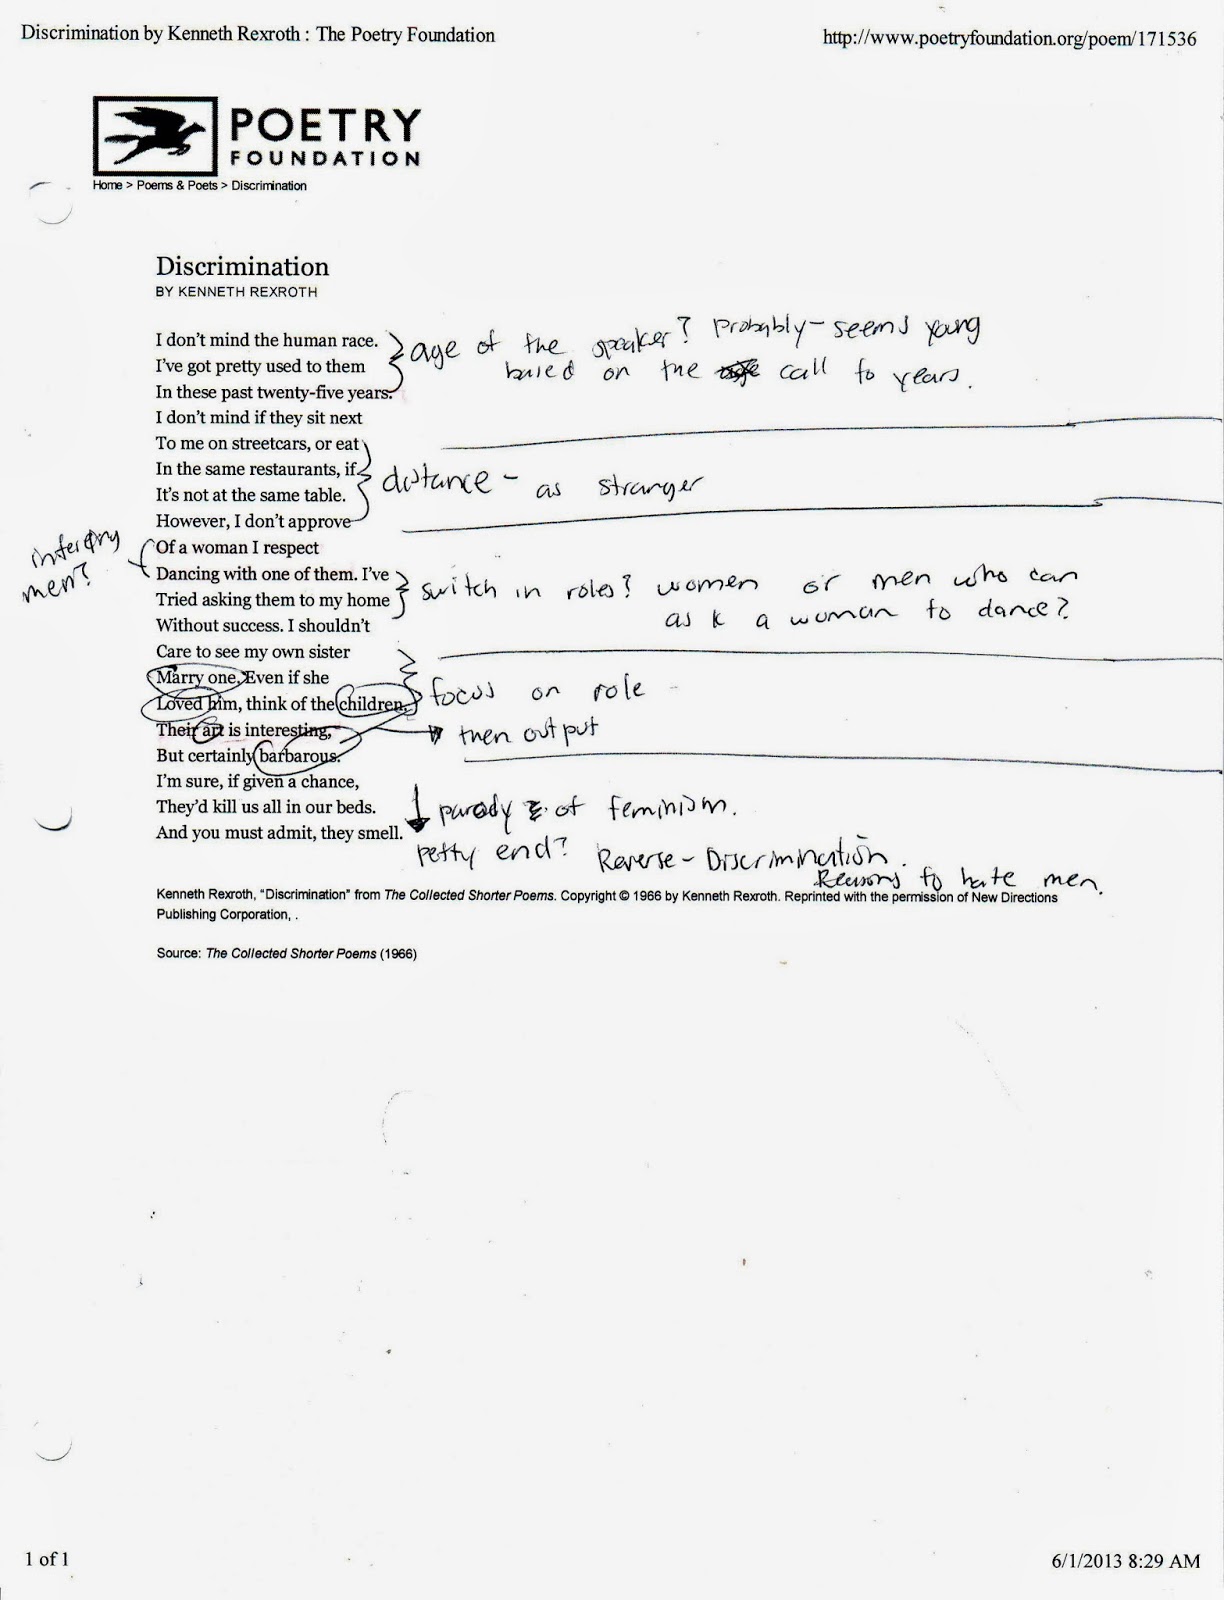 Discrimination by Kenneth Rexroth : The Poetry Foundation
http://www.poetryfoundation.org/poem/171536
POETRY
FOUNDATION
Home > Poems & Poets > Discrimination
Discrimination
BY KENNETH REXROTH
I don't mind the human race.
I've got pretty used to them
In these past twenty-five years.
age of the speaker? Probably – seems young
based on the age call to years.
I don't mind if they sit next
To me on streetcars, or eat
In the same restaurants, if
It's not at the same table.
distance – as stranger
However, I don't approve
Of a woman I respect
Dancing with one of them. I've
Tried asking them to my home
Without success. I shouldn't
men?
switch in roles? women or men who can
ask a woman to dance?
Care to see my own sister
Marry one. Even if she
Loved him, think of the children.
Their art is interesting,
But certainly barbarous.
focus on role –
then output
I'm sure, if given a chance,
They'd kill us all in our beds.
And you must admit, they smell.
parody of feminism.
Petty end? Reverse – Discrimination.
Reasons to hate men.
Kenneth Rexroth, "Discrimination" from The Collected Shorter Poems. Copyright © 1966 by Kenneth Rexroth. Reprinted with the permission of New Directions
Publishing Corporation, .
Source: The Collected Shorter Poems (1966)
1 of 1
6/1/2013 8:29 AM